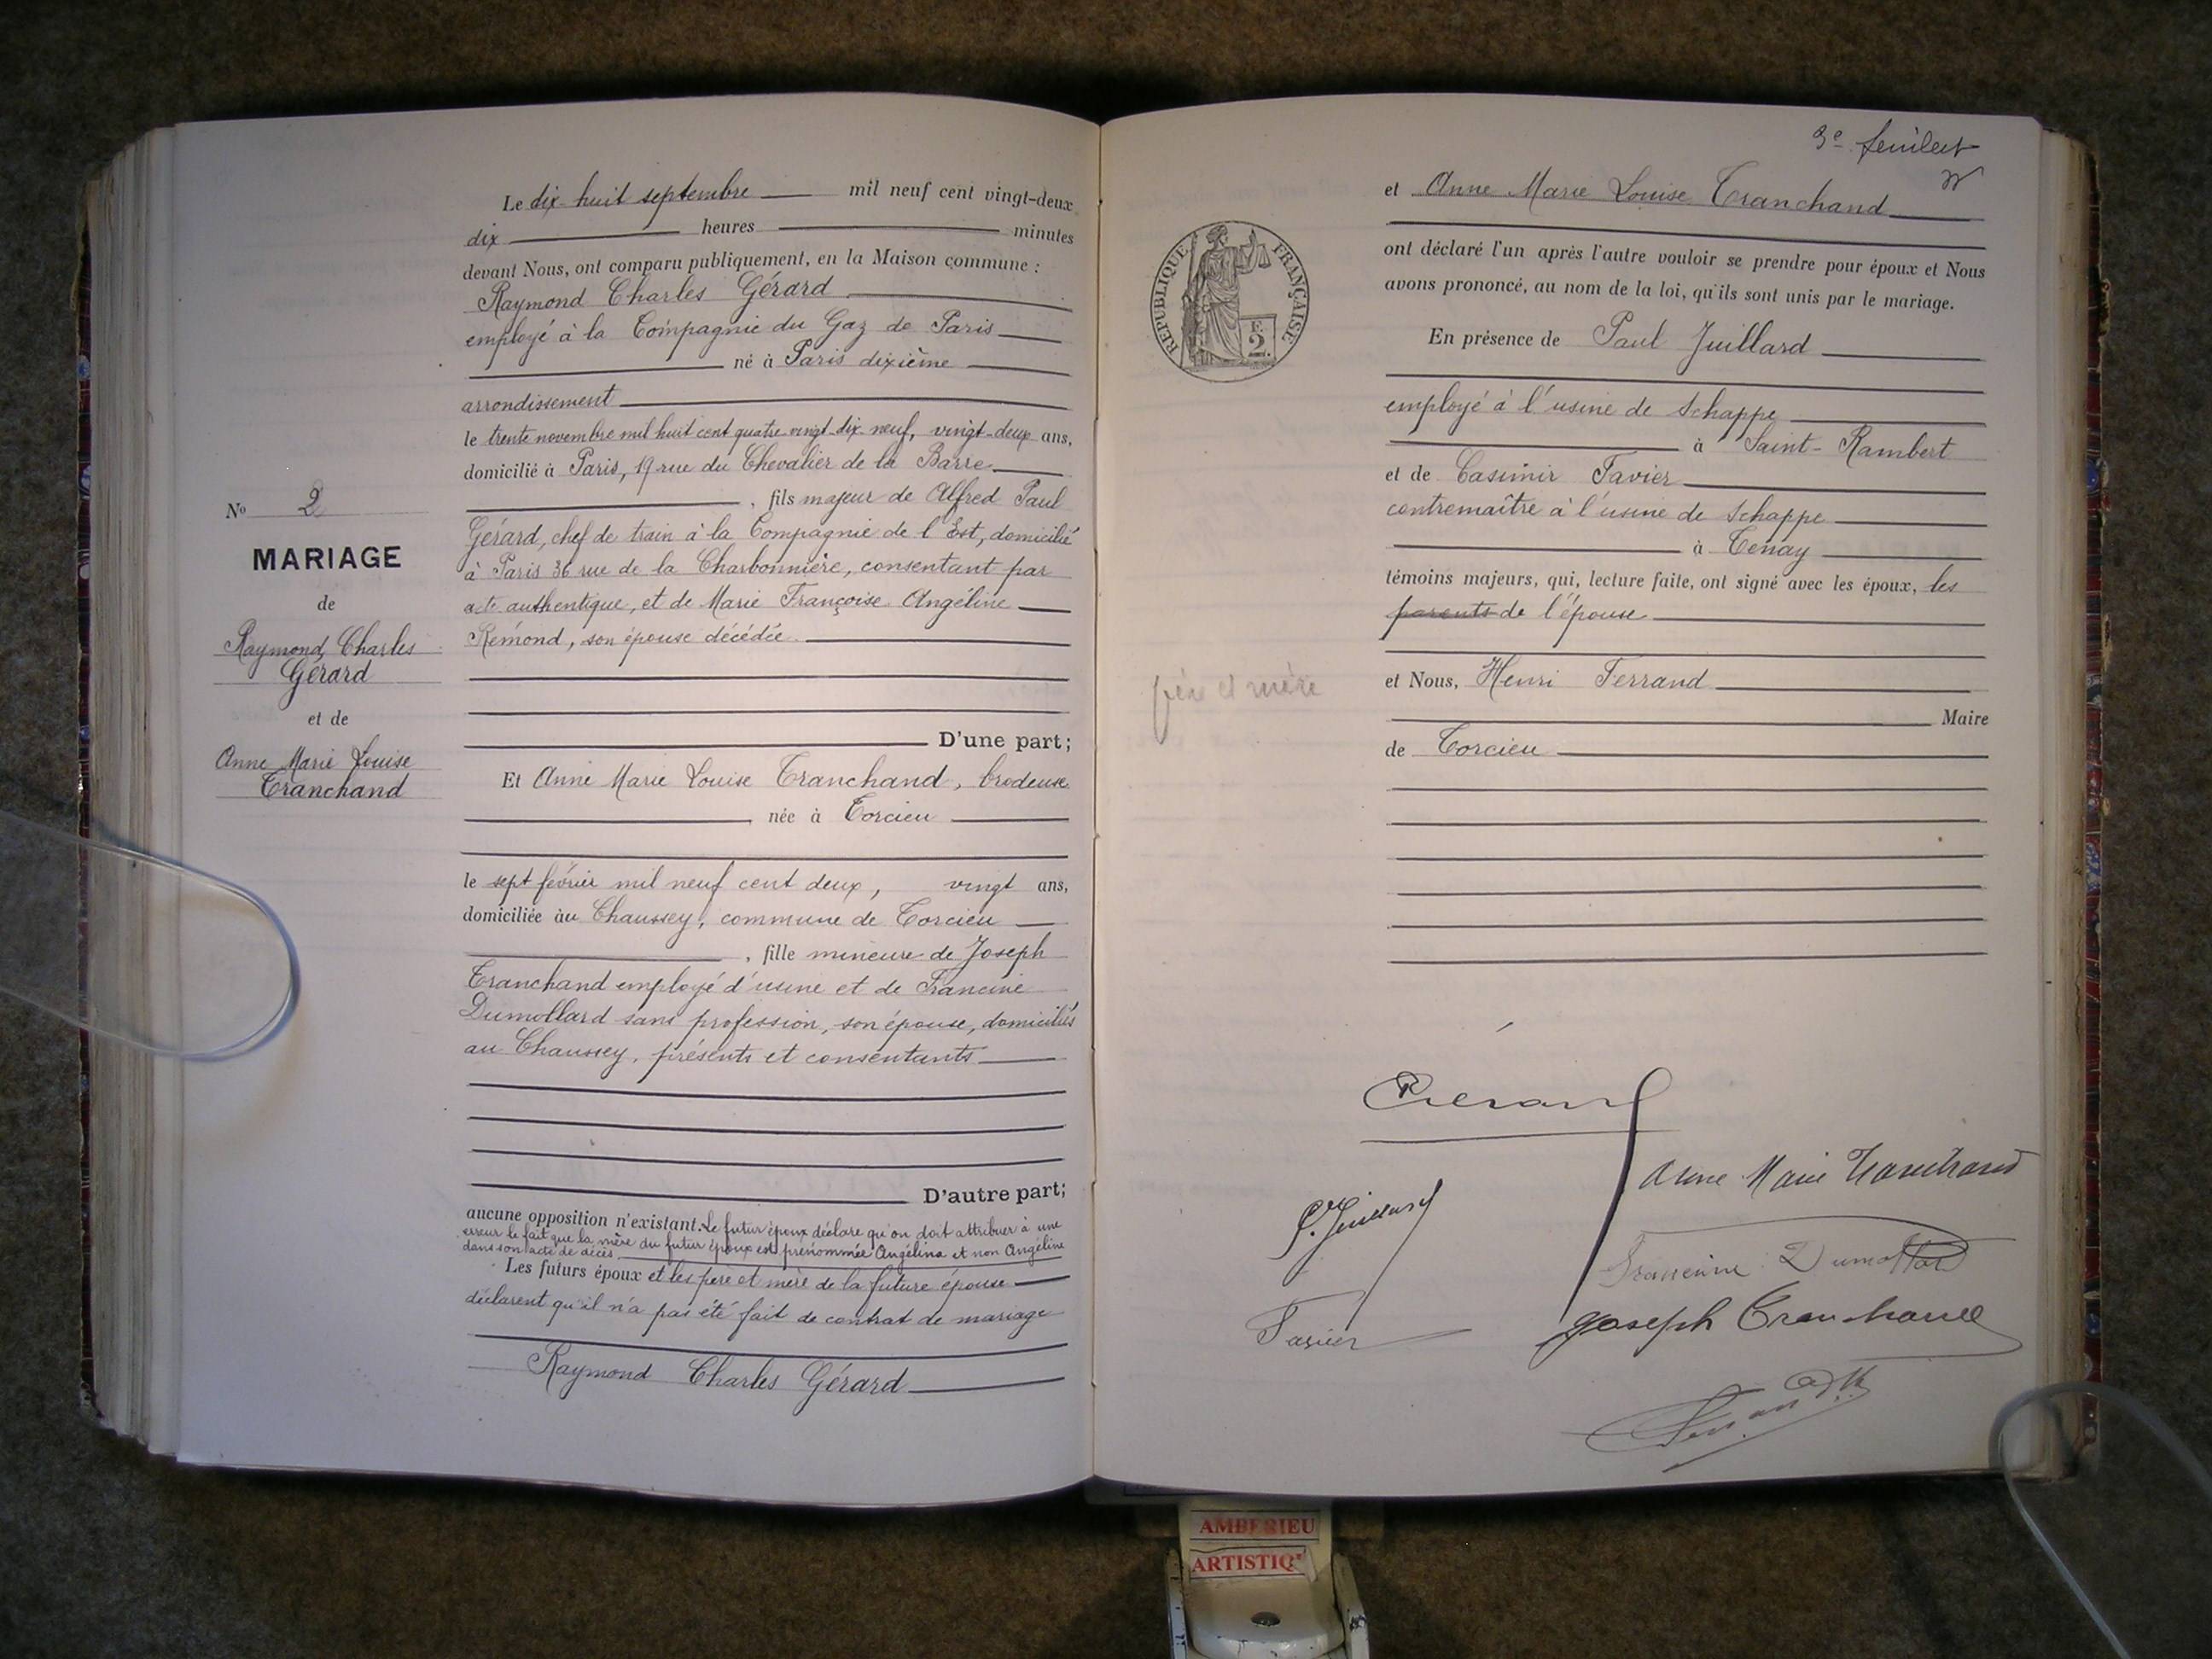 Le dix-huit septembre mil neuf cent vingt-deux
dix heures minutes
devant Nous, ont comparu publiquement, en la Maison commune :
Raymond Charles Gérard
employé à la Compagnie du Gaz de Paris
né à Paris dixième
arrondissement
le trente novembre mil huit cent quatre-vingt-dix-neuf, vingt-deux ans,
domicilié à Paris, 19 rue du Chevalier de la Barre
, fils majeur de Alfred Paul
Gérard, chef de train à la Compagnie de l'Est, domicilié
à Paris 36 rue de la Charbonnière, consentant par
acte authentique, et de Marie Françoise Angéline
Rémond, son épouse décédée
D'une part;
No 2
MARIAGE
de
Raymond Charles
Gérard
et de
Anne Marie Louise
Tranchand
Et Anne Marie Louise Tranchand, brodeuse
née à Torcieu
le sept février mil neuf cent deux, vingt ans,
domiciliée au Chaussey, commune de Torcieu
, fille mineure de Joseph
Tranchand employé d'usine et de Francine
Dumollard sans profession, son épouse, domiciliés
au Chaussey, présents et consentants
D'autre part;
aucune opposition n'existant. Le futur époux déclare qu'on doit attribuer à une
erreur le fait que la mère du futur époux est prénommée Angélina et non Angéline
dans son acte de décès
Les futurs époux et les père et mère de la future épouse
déclarent qu'il n'a pas été fait de contrat de mariage
Raymond Charles Gérard
3e feuillet
et Anne Marie Louise Tranchand
ont déclaré l'un après l'autre vouloir se prendre pour époux et Nous
avons prononcé, au nom de la loi, qu'ils sont unis par le mariage.
REPUBLIQUE FRANÇAISE
F.
2.
En présence de Paul Juillard
employé à l'usine de Schappe
à Saint-Rambert
et de Casimir Favier
contremaître à l'usine de Schappe
à Tenay
témoins majeurs, qui, lecture faite, ont signé avec les époux, les
parents de l'épouse
père et mère
et Nous, Henri Ferrand
Maire
de Torcieu
Gérard
Anne Marie Tranchand
P. Juillard
Francine Dumollard
Favier
Joseph Tranchand
AMBERIEU
ARTISTIQ'